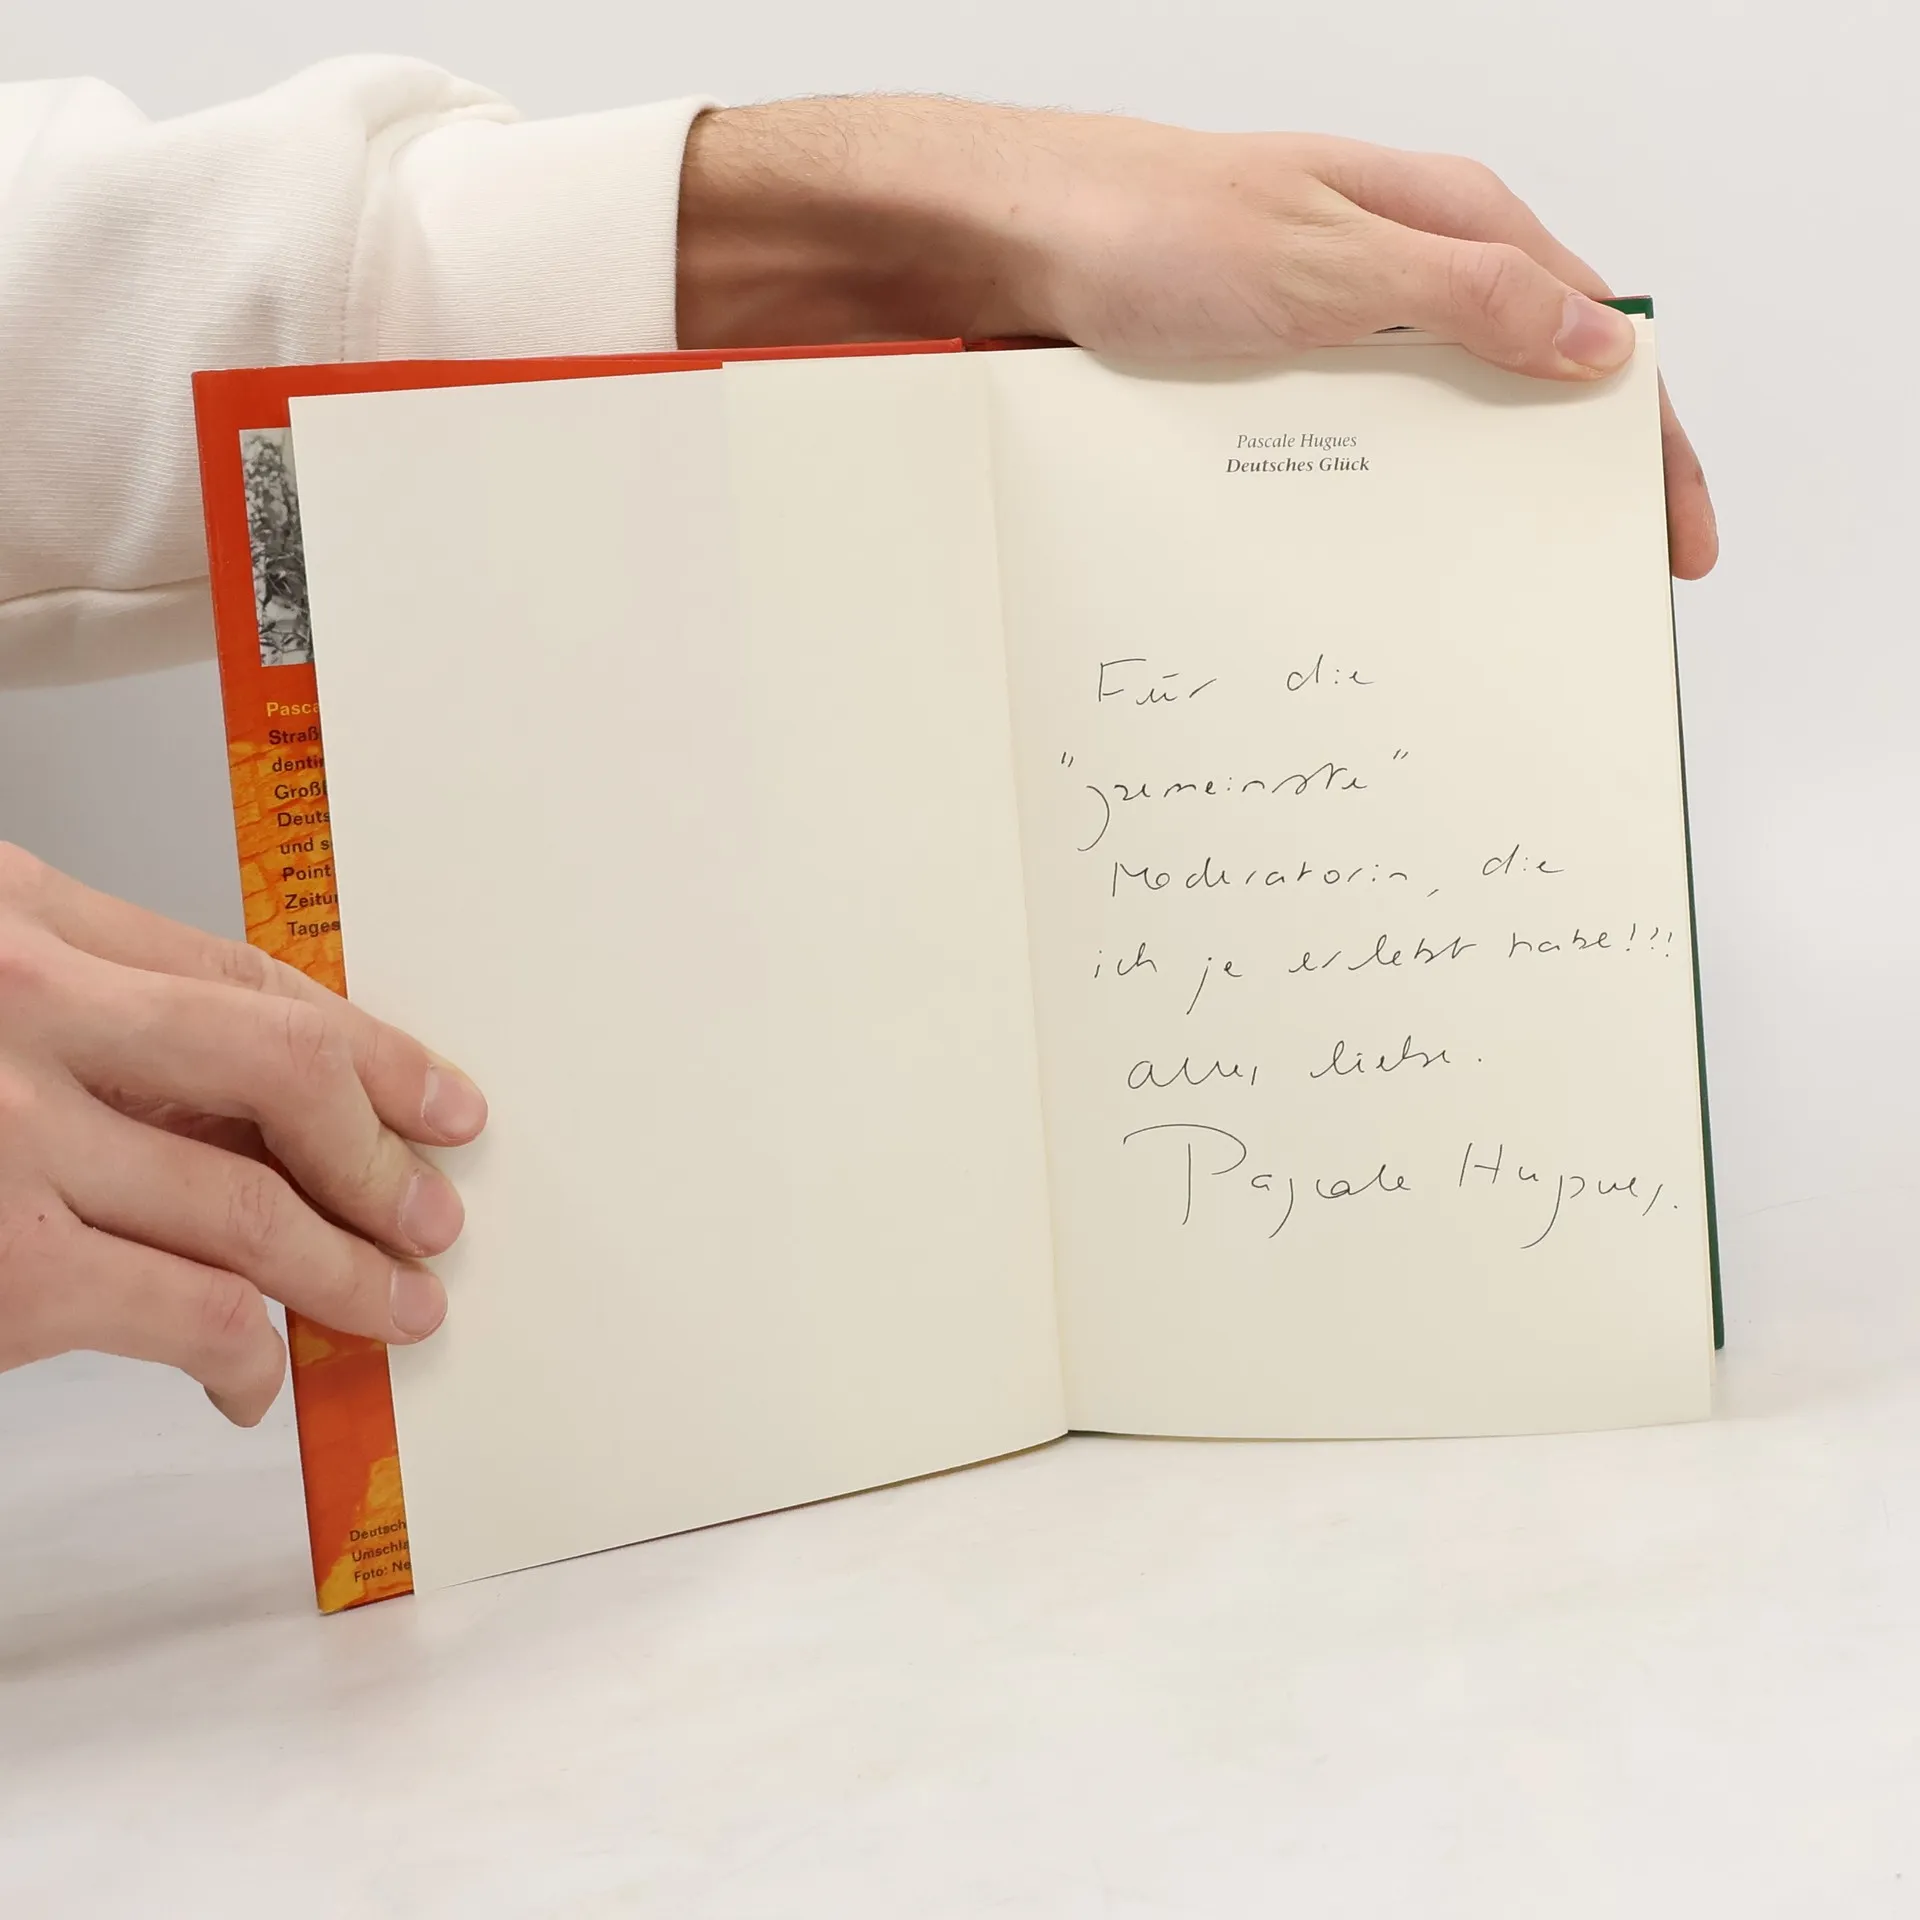 Pasca
Straß
denti
Großl
Deuts
und s
Point
Zeitu
Tages
Deutsch
Umschla
Foto: Ne
Pascale Hugues
Deutsches Glück
Für die
"gemeinste"
Moderatorin, die
ich je erlebt habe!!!
alles liebe.
Pascale Hugues.